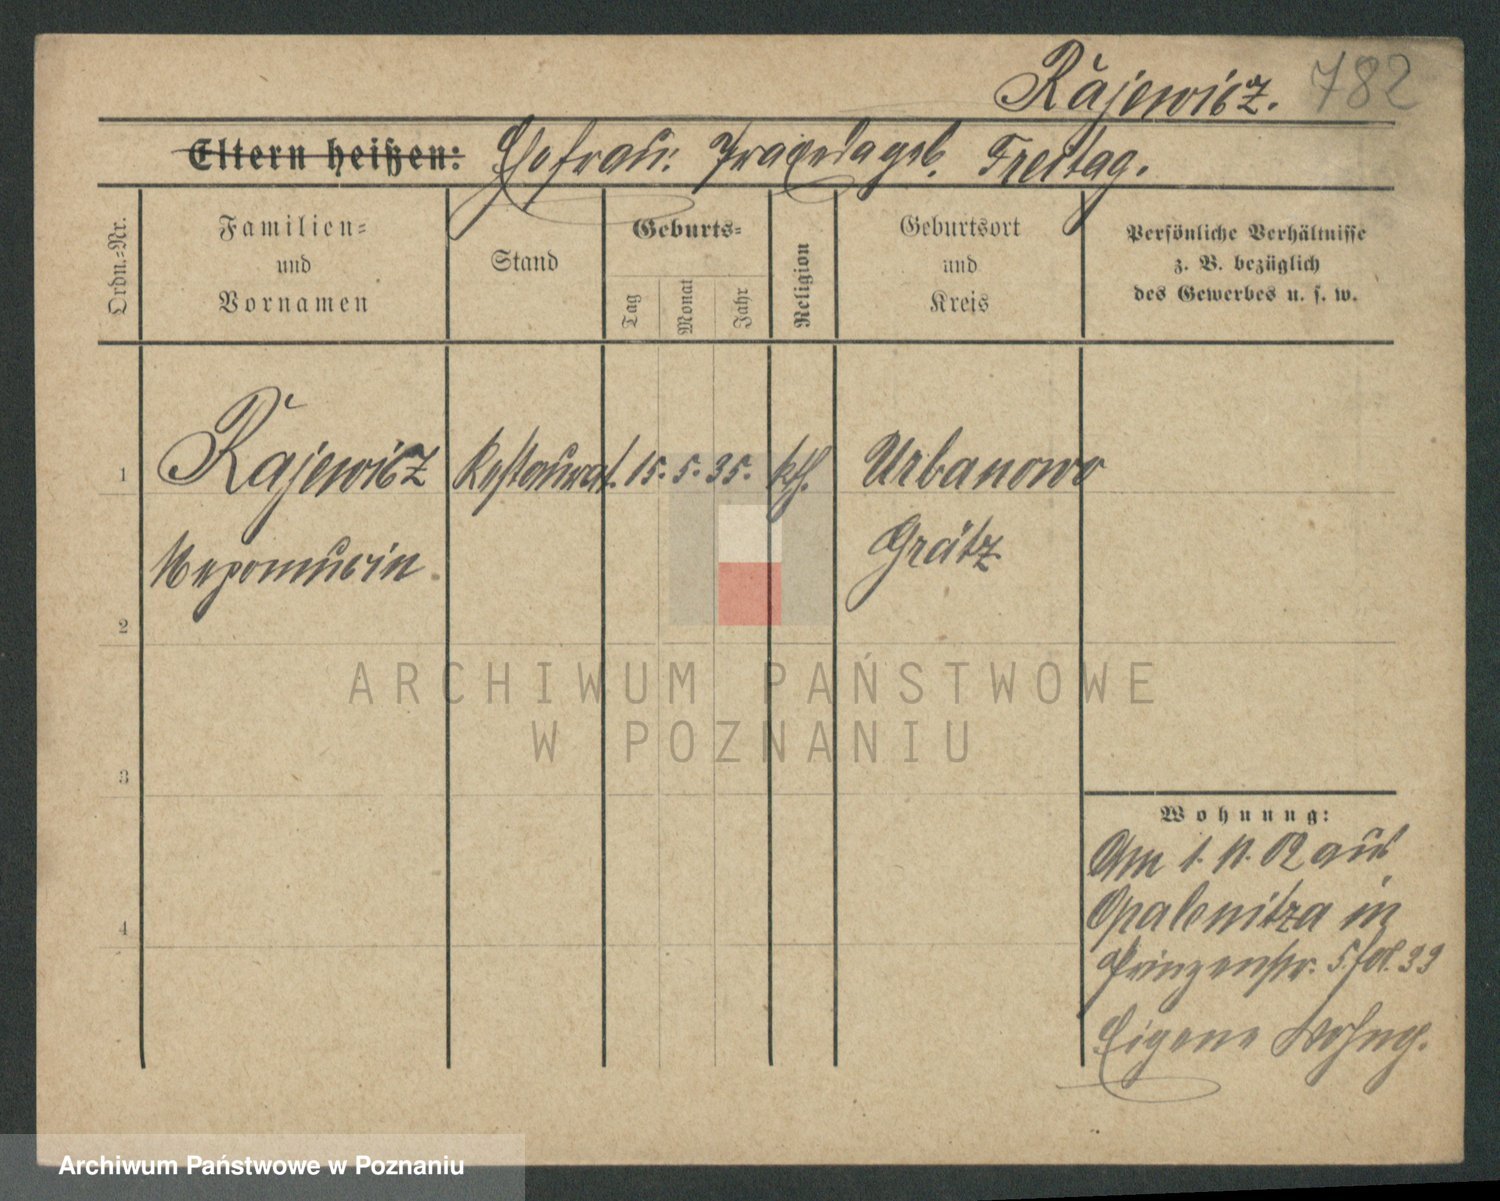 Rajewicz. 782
Eltern heißen: Ehefrau: Praxeda geb. Freitag.
Ordn.=Nr.
Familien=
und
Vornamen
Stand
Geburts=
Tag
Monat
Jahr
Religion
Geburtsort
und
Kreis
Persönliche Verhältnisse
z. B. bezüglich
des Gewerbes u. s. w.
1 Rajewicz Restaurat. 15. 5. 35. kth. Urbanowo
Nepomucin Grätz
2
3
4
ARCHIWUM PAŃSTWOWE
W POZNANIU
Wohnung:
Am 1. 11. 02 aus
Opalenitza in
Prinzenstr. 5. fol. 33
Eigene Wohng.
Archiwum Państwowe w Poznaniu